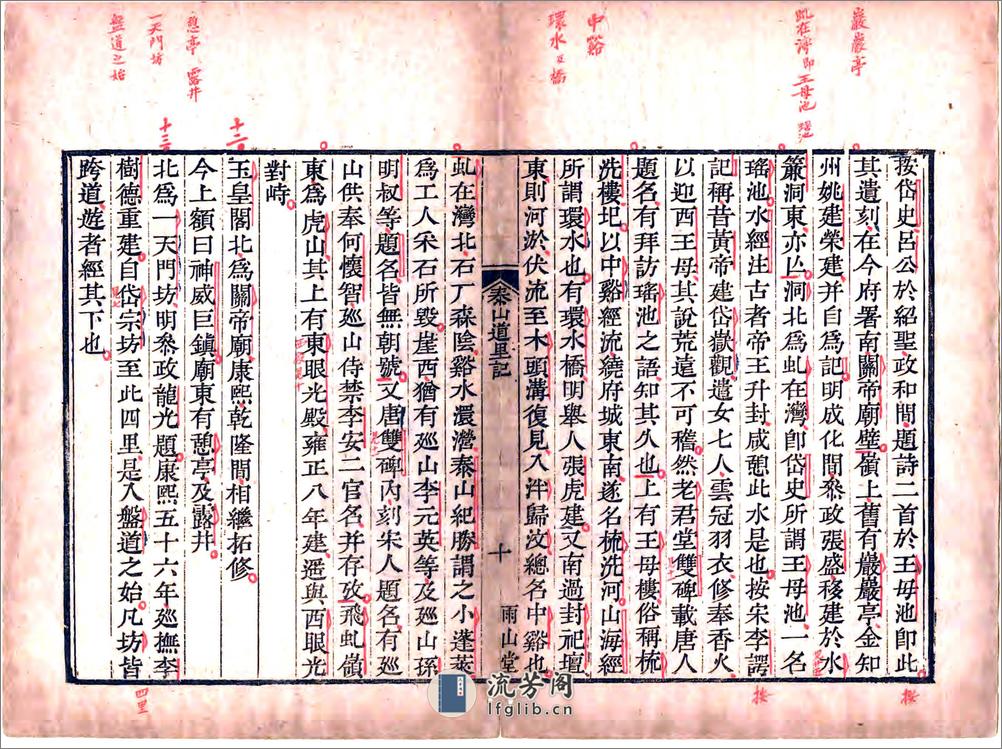 巖巖亭
虬在灣即王母池
中谿
環水 橋
憩亭 露井
一天門坊
盤道之始
按岱史呂公於紹聖政和間題詩二首於王母池即此
其遺刻在今府署南關帝廟壁嶺上舊有巖巖亭金知
州姚建榮建并自爲記明成化間叅政張盛移建於水
簾洞東亦凸洞北爲虬在灣即岱史所謂王母池一名
瑤池水經注古者帝王升封咸憩此水是也按宋李諤
記稱昔黃帝建岱嶽觀遣女七人雲冠羽衣修奉香火
以迎西王母其說荒遠不可稽然老君堂雙碑載唐人
題名有拜訪瑤池之語知其久也上有王母樓俗稱梳
洗樓圮以中谿經流繞府城東南遂名梳洗河山海經
所謂環水也有環水橋明舉人張虎建又南過封祀壇
東則河淤伏流至木頭溝復見入泮歸汶總名中谿也
泰山道里記
十
雨山堂
虬在灣北石厂森陰谿水濴瀠泰山紀勝謂之小蓬萊
爲工人采石所毀崖西猶有廵山李元英等及廵山孫
明叔等題名皆無朝號又唐雙碑內刻宋人題名有廵
山供奉何懷智廵山侍禁李安二官名并存攷飛虬嶺
東爲虎山其上有東眼光殿雍正八年建遥與西眼光
對峙
玉皇閣北爲關帝廟康熙乾隆間相繼拓修
今上額曰神威巨鎮廟東有憩亭及露井
北爲一天門坊明叅政龍光題康熙五十六年廵撫李
樹德重建自岱宗坊至此四里是入盤道之始凡坊皆
跨道遊者經其下也
十二
十三
按
按
四里
流芳阁
lfglib.cn